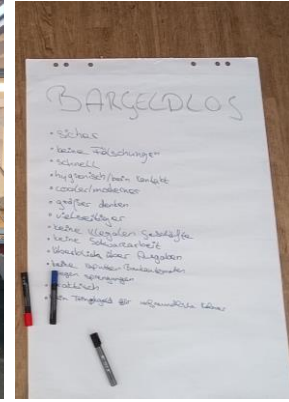 BARGELDLOS
• sicher
• keine Fälschungen
• schnell
• hygienisch/kein Kontakt
• cooler/moderner
• größer denken
• vielseitiger
• keine illegalen Geschäfte
• keine Schwarzarbeit
• Überblick über Ausgaben
• keine Bankautomaten
sprengungen
• praktisch
• kein Trinkgeld für